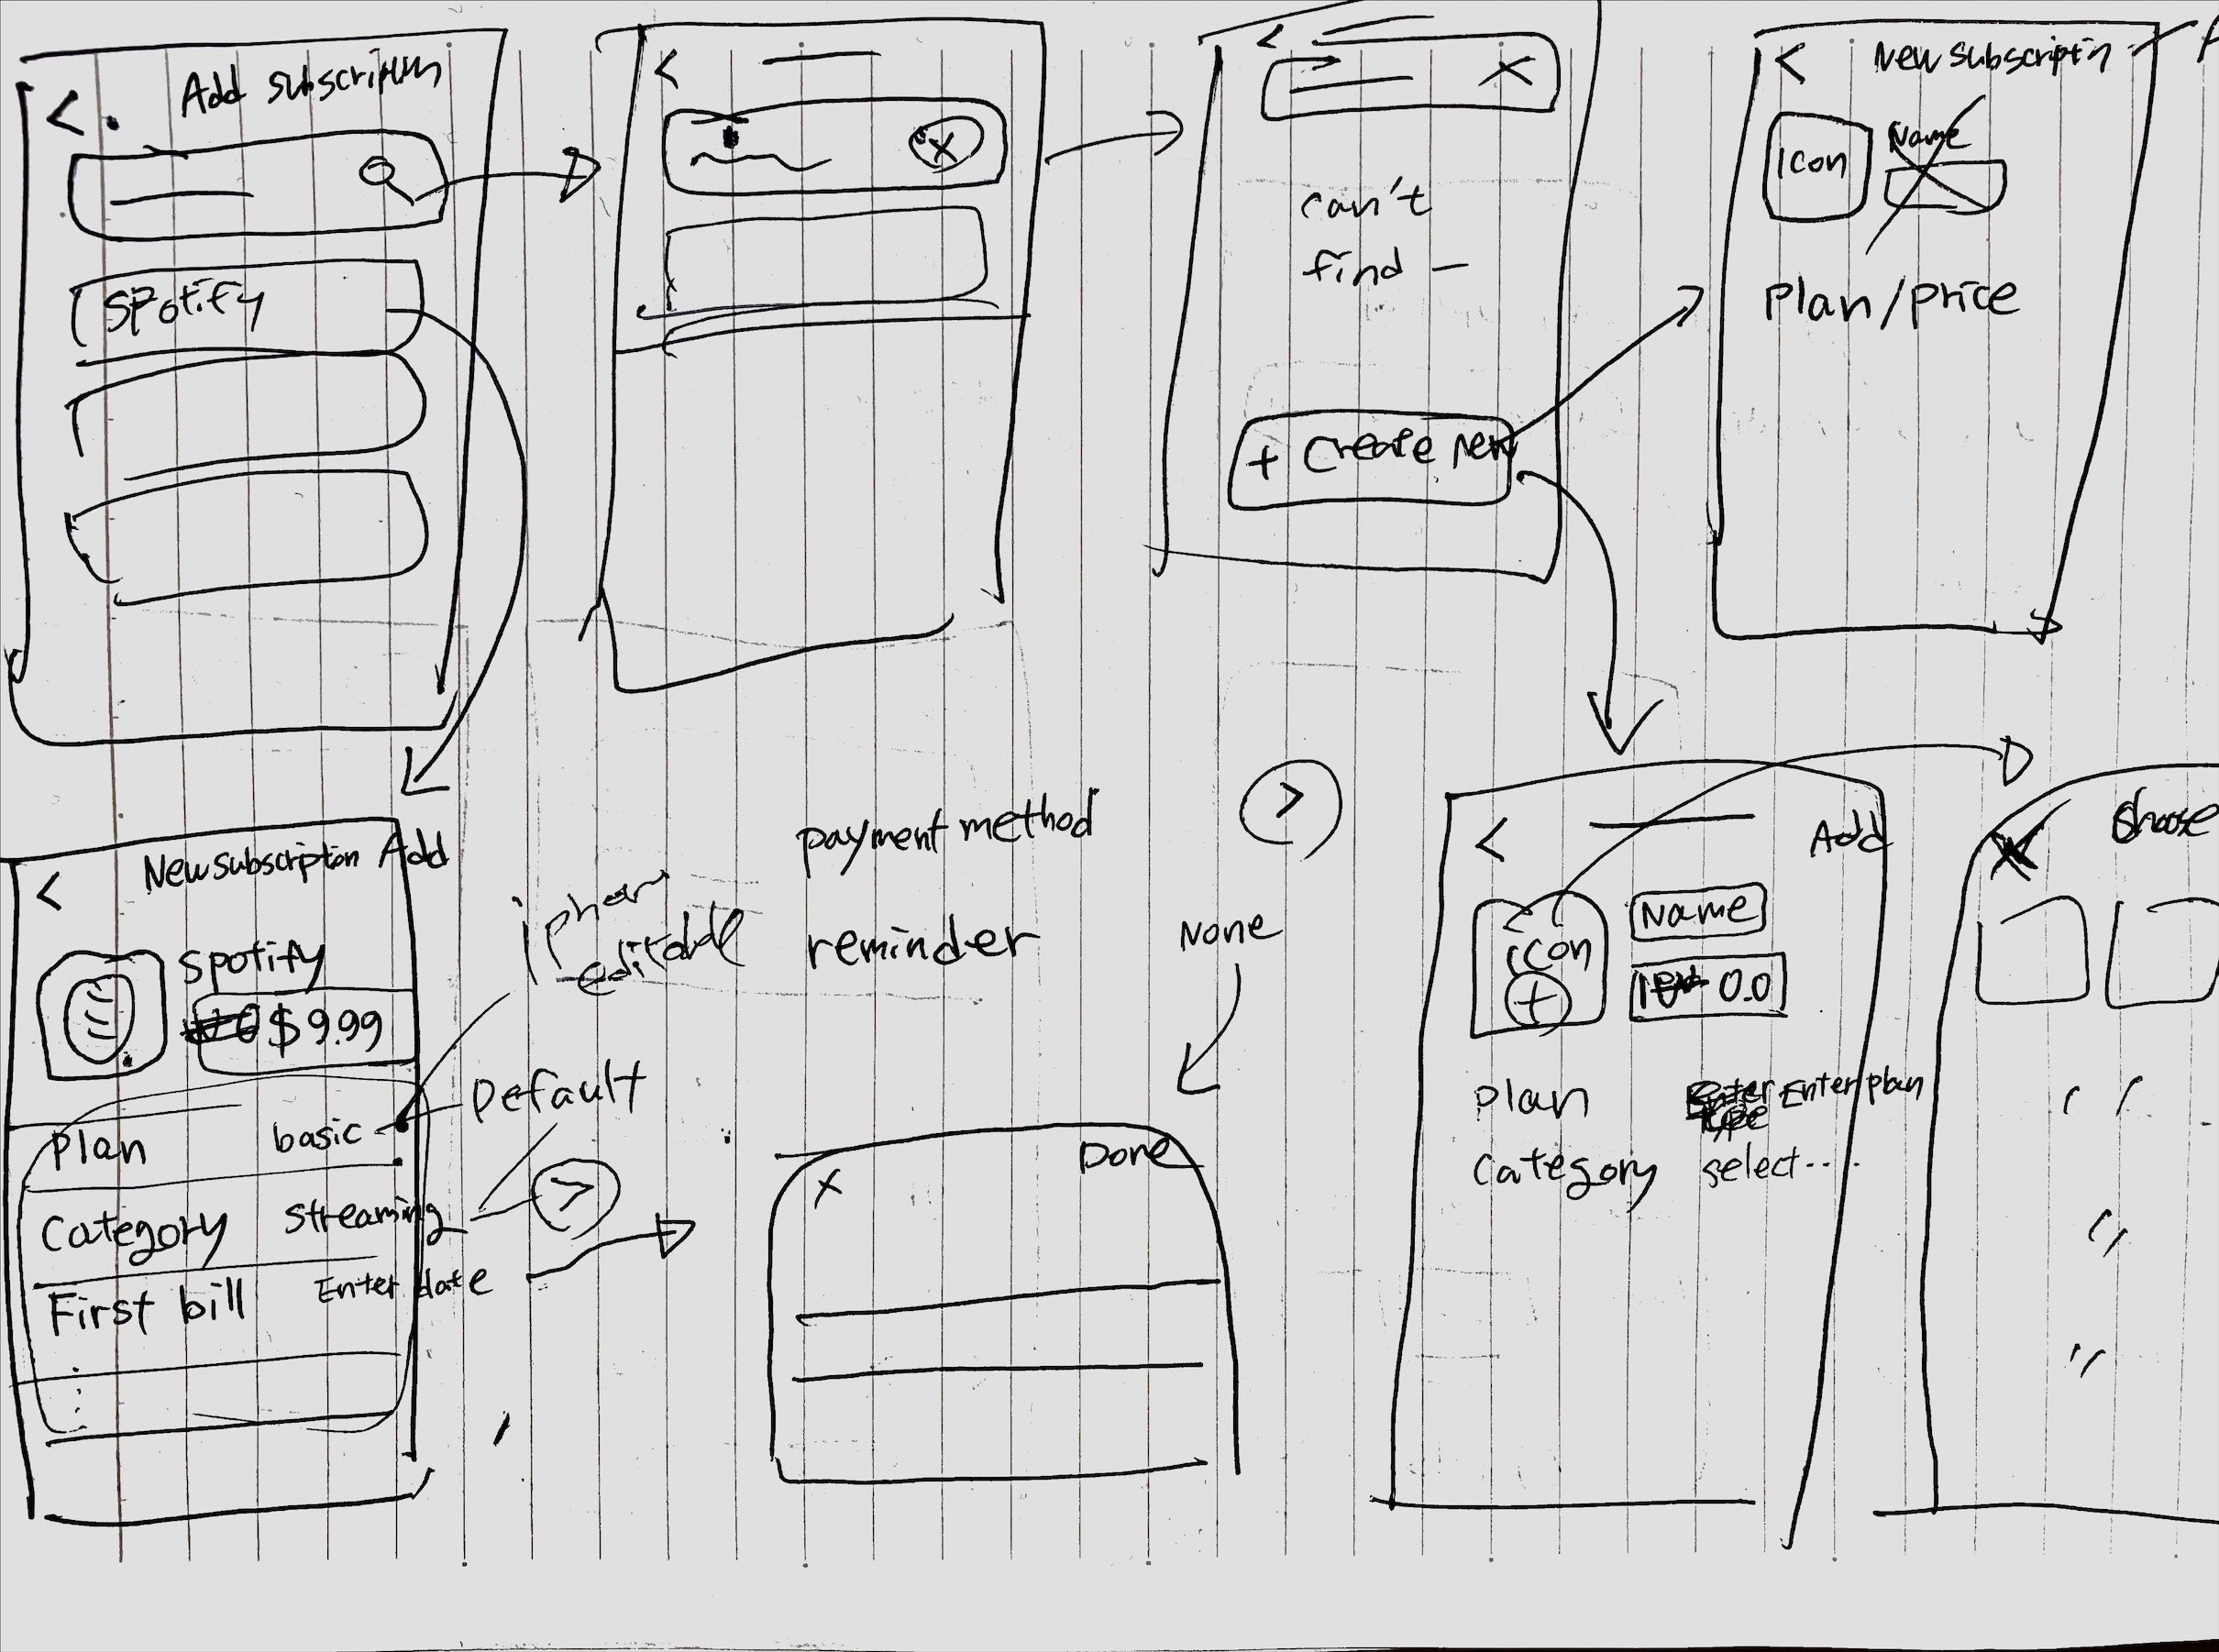 Add subscriptin
Spotify
can't
find —
+ Create new
New subscriptin
icon
Name
Plan/price
New subscription Add
Spotify
$9.99
Plan basic
Category Streaming
First bill Enter date
editable
Default
payment method
reminder
None
X Done
Add
icon
+
Name
0.0
Plan Enter plan
Category select....
Choose